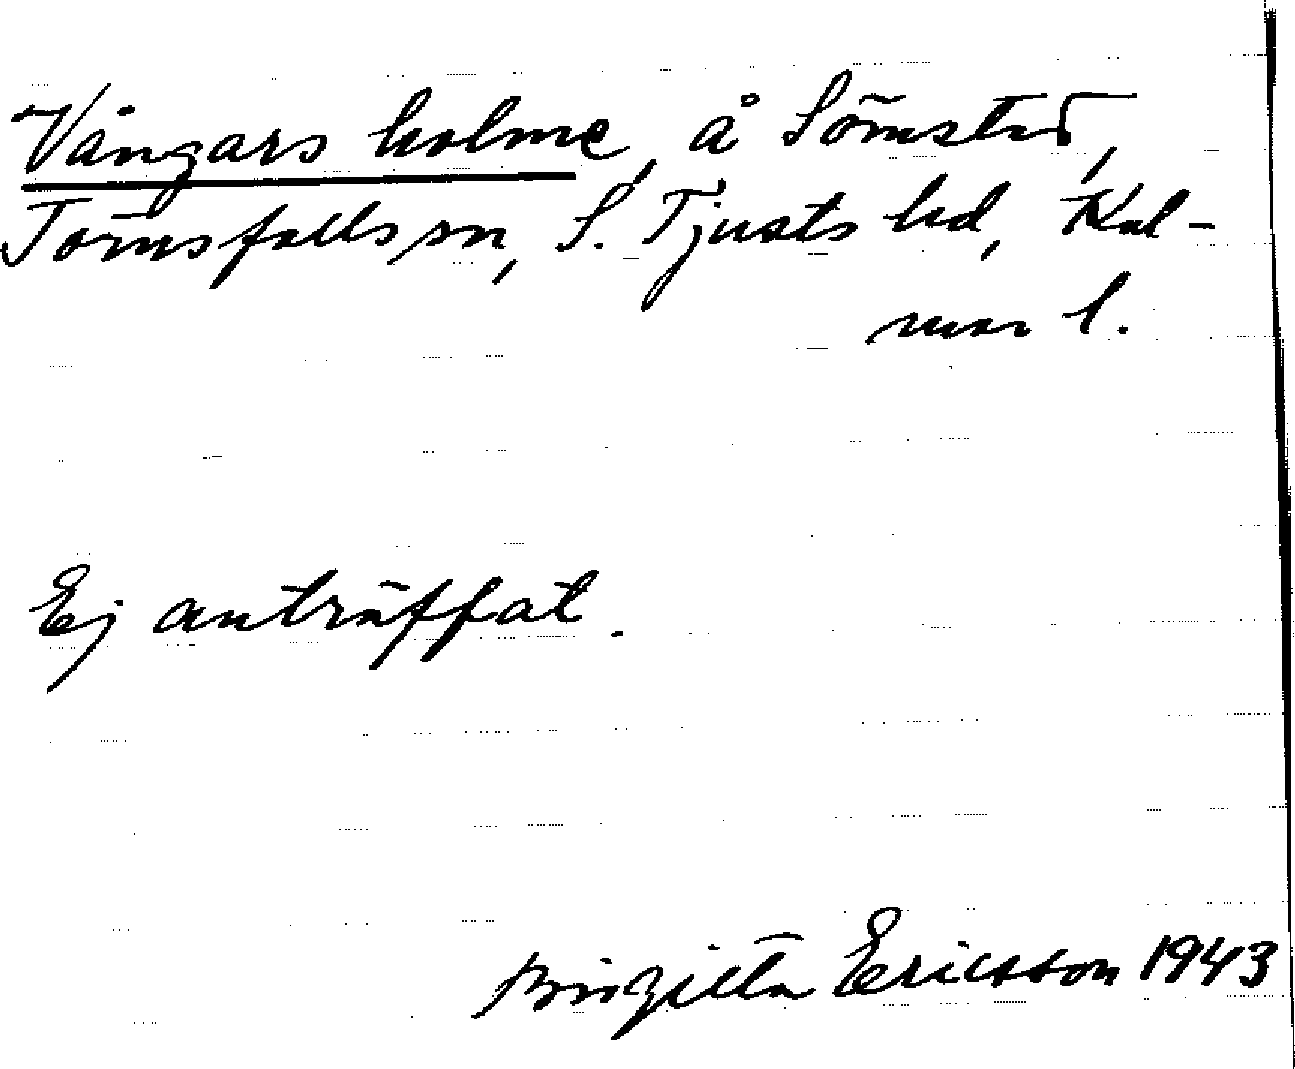 Vångars holme, å Sömstad,
Törnsfalls sn, S. Tjusts hd, Kal-
mar l.
Ej anträffat.
Birgitta Ericsson 1943